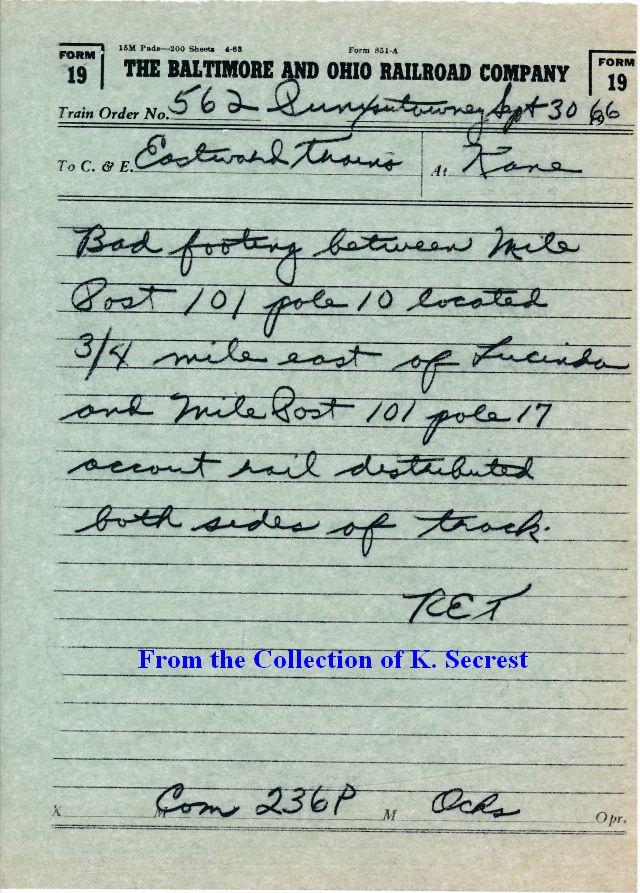 15M Pads—200 Sheets 4-63 Form 851-A
FORM 19 THE BALTIMORE AND OHIO RAILROAD COMPANY FORM 19
Train Order No. 562 Punxsutawney Sept 30 66
To C. & E. Eastward Trains At Kane
Bad footing between Mile
Post 101 pole 10 located
3/4 mile east of Lucinda
and Mile Post 101 pole 17
account rail distributed
both sides of track.
RET
From the Collection of K. Secrest
X M Com 236P M Ochs Opr.